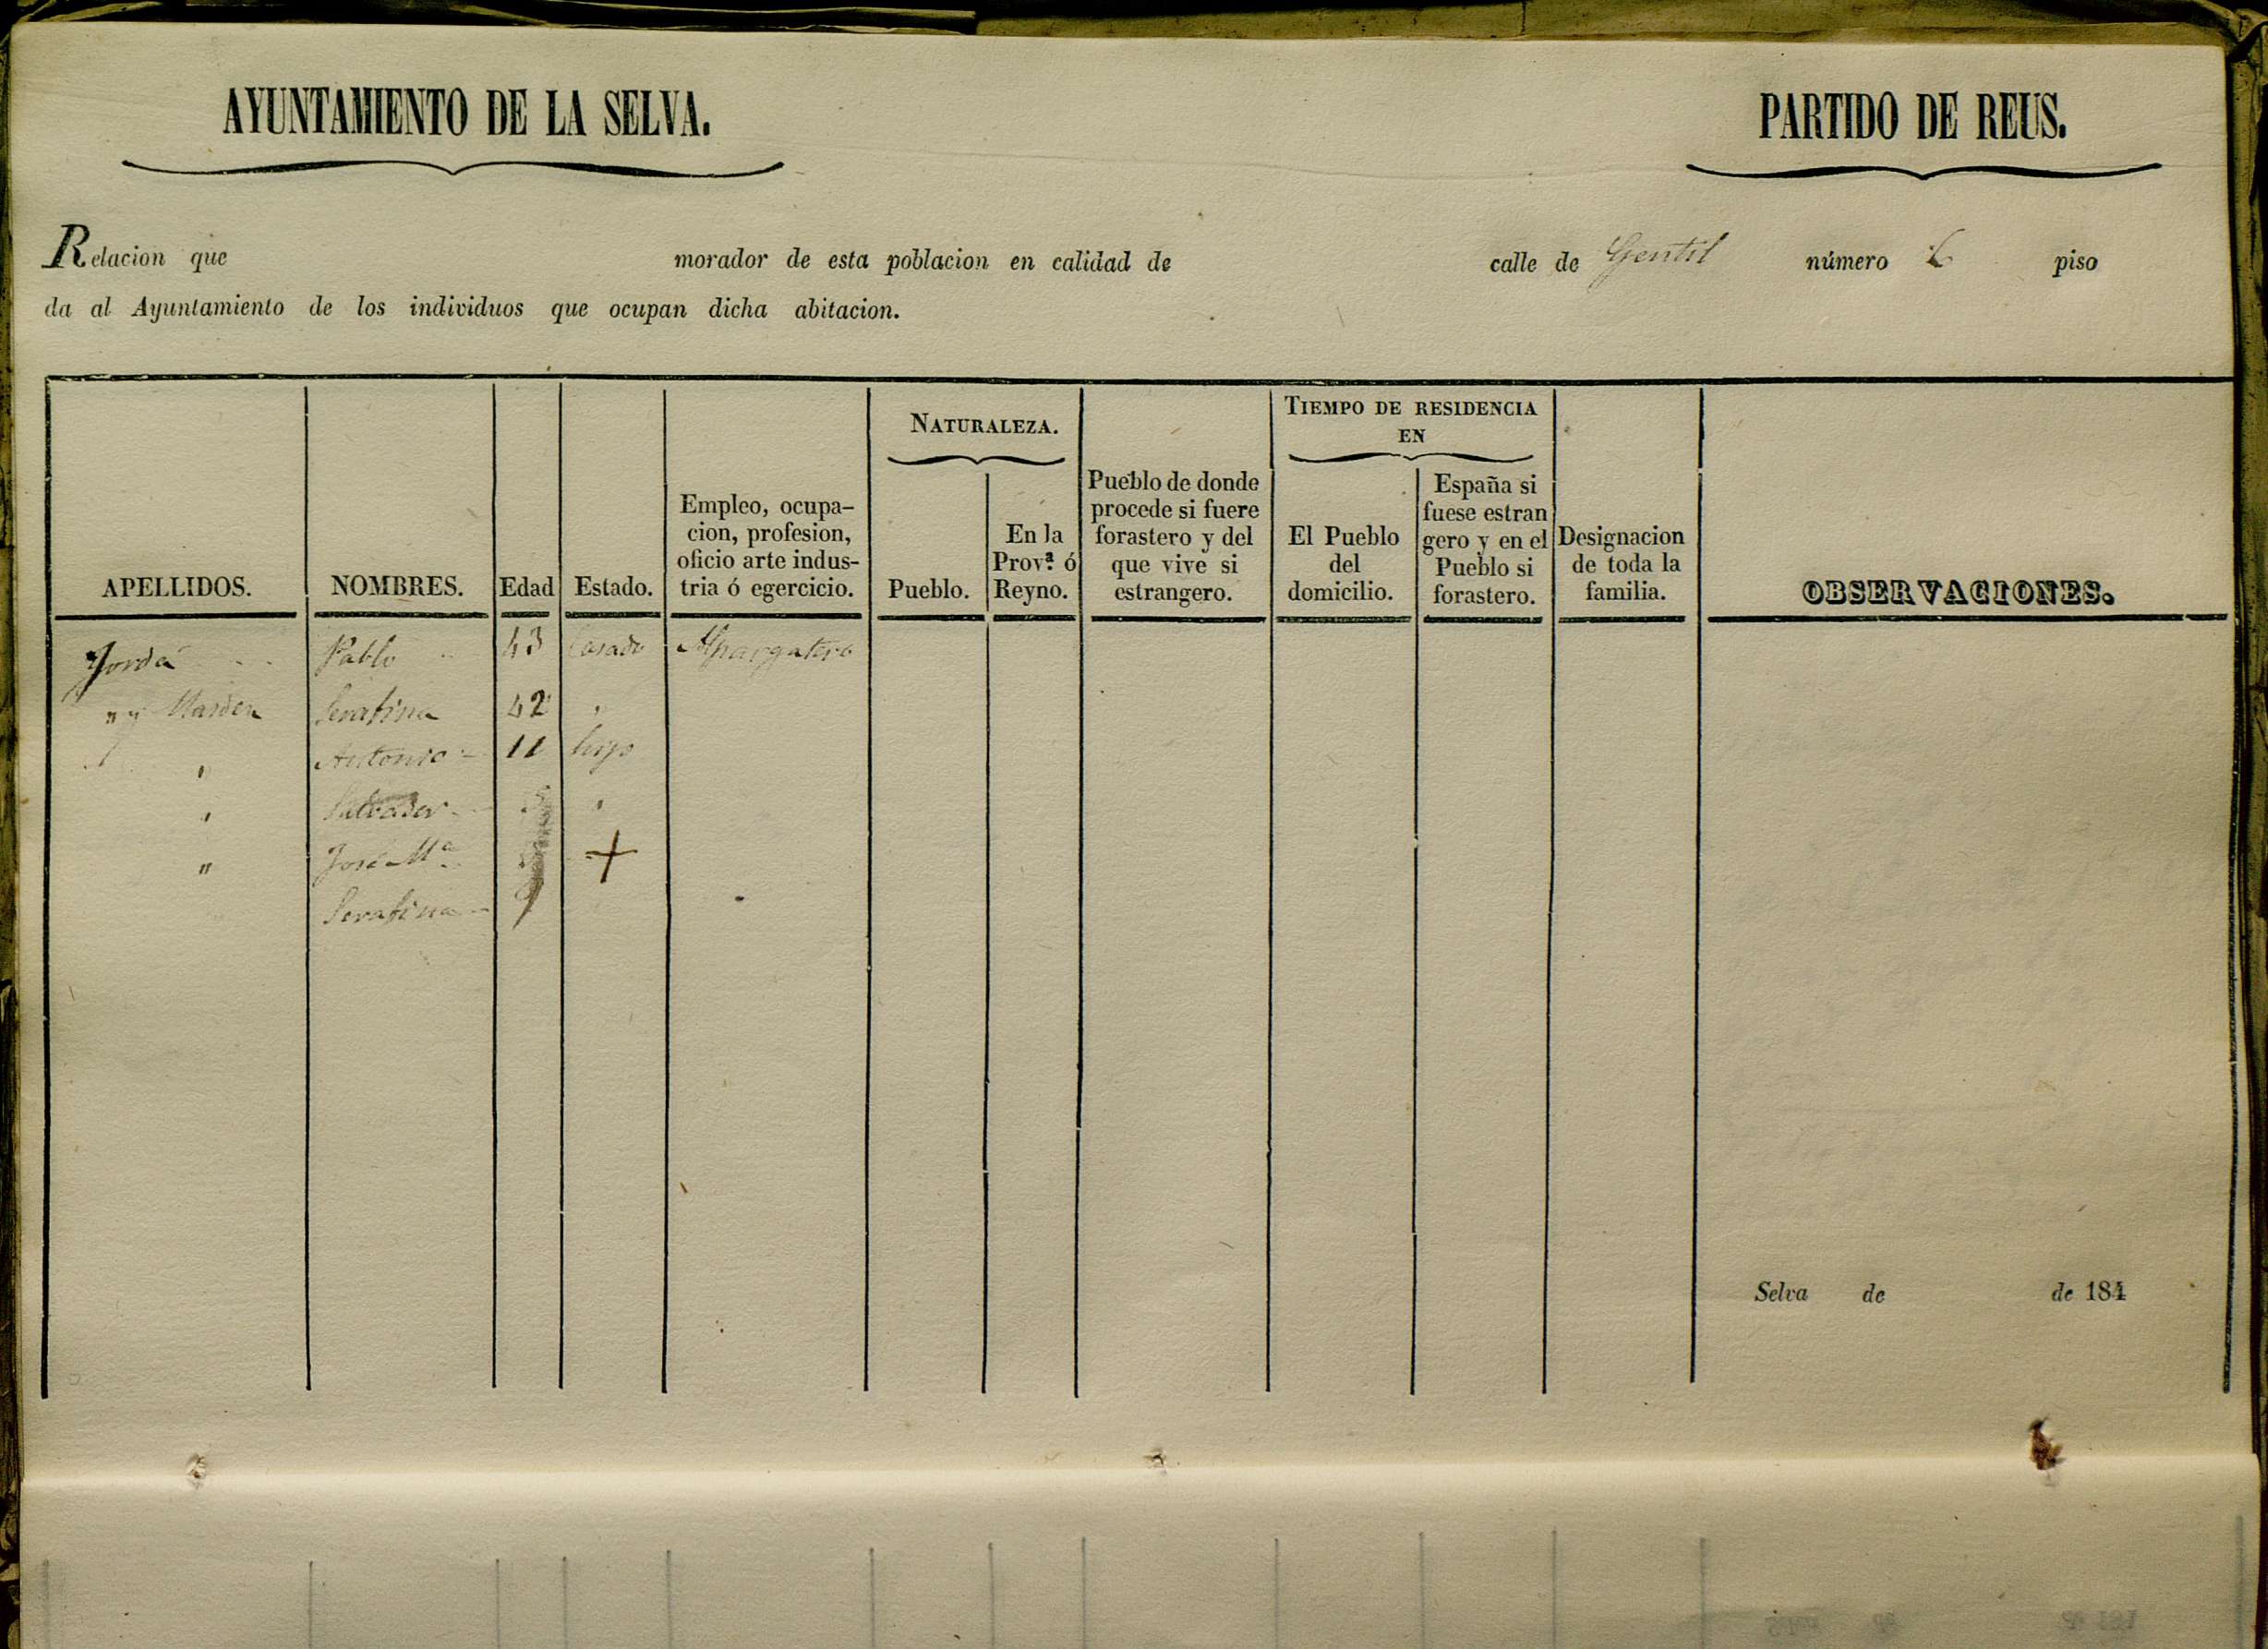 AYUNTAMIENTO DE LA SELVA.
PARTIDO DE REUS.
Relacion que morador de esta poblacion en calidad de calle de Gentil número piso
da al Ayuntamiento de los individuos que ocupan dicha abitacion.
NATURALEZA.
TIEMPO DE RESIDENCIA
EN
APELLIDOS.
NOMBRES.
Edad
Estado.
Empleo, ocupa-
cion, profesion,
oficio arte indus-
tria ó egercicio.
Pueblo.
En la
Prov.ª ó
Reyno.
Pueblo de donde
procede si fuere
forastero y del
que vive si
estrangero.
El Pueblo
del
domicilio.
España si
fuese estran
gero y en el
Pueblo si
forastero.
Designacion
de toda la
familia.
OBSERVACIONES.
Jordá Pablo 43 Casado Alpargatero
" y Serafina 42 "
" Antonio 11 hijo
" Salvador "
" José Mª +
Serafina 9
Selva de de 184